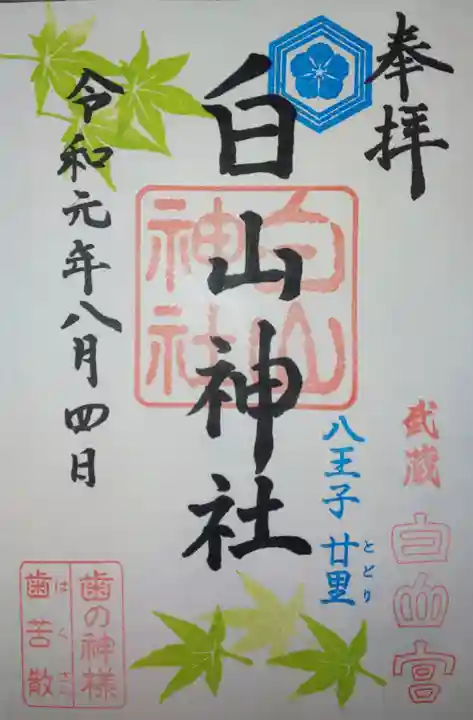 奉拝
武蔵
白山宮
八王子 廿里
とどり
白山神社
白山
神社
令和元年八月四日
歯の神様
はくさん
歯苦散